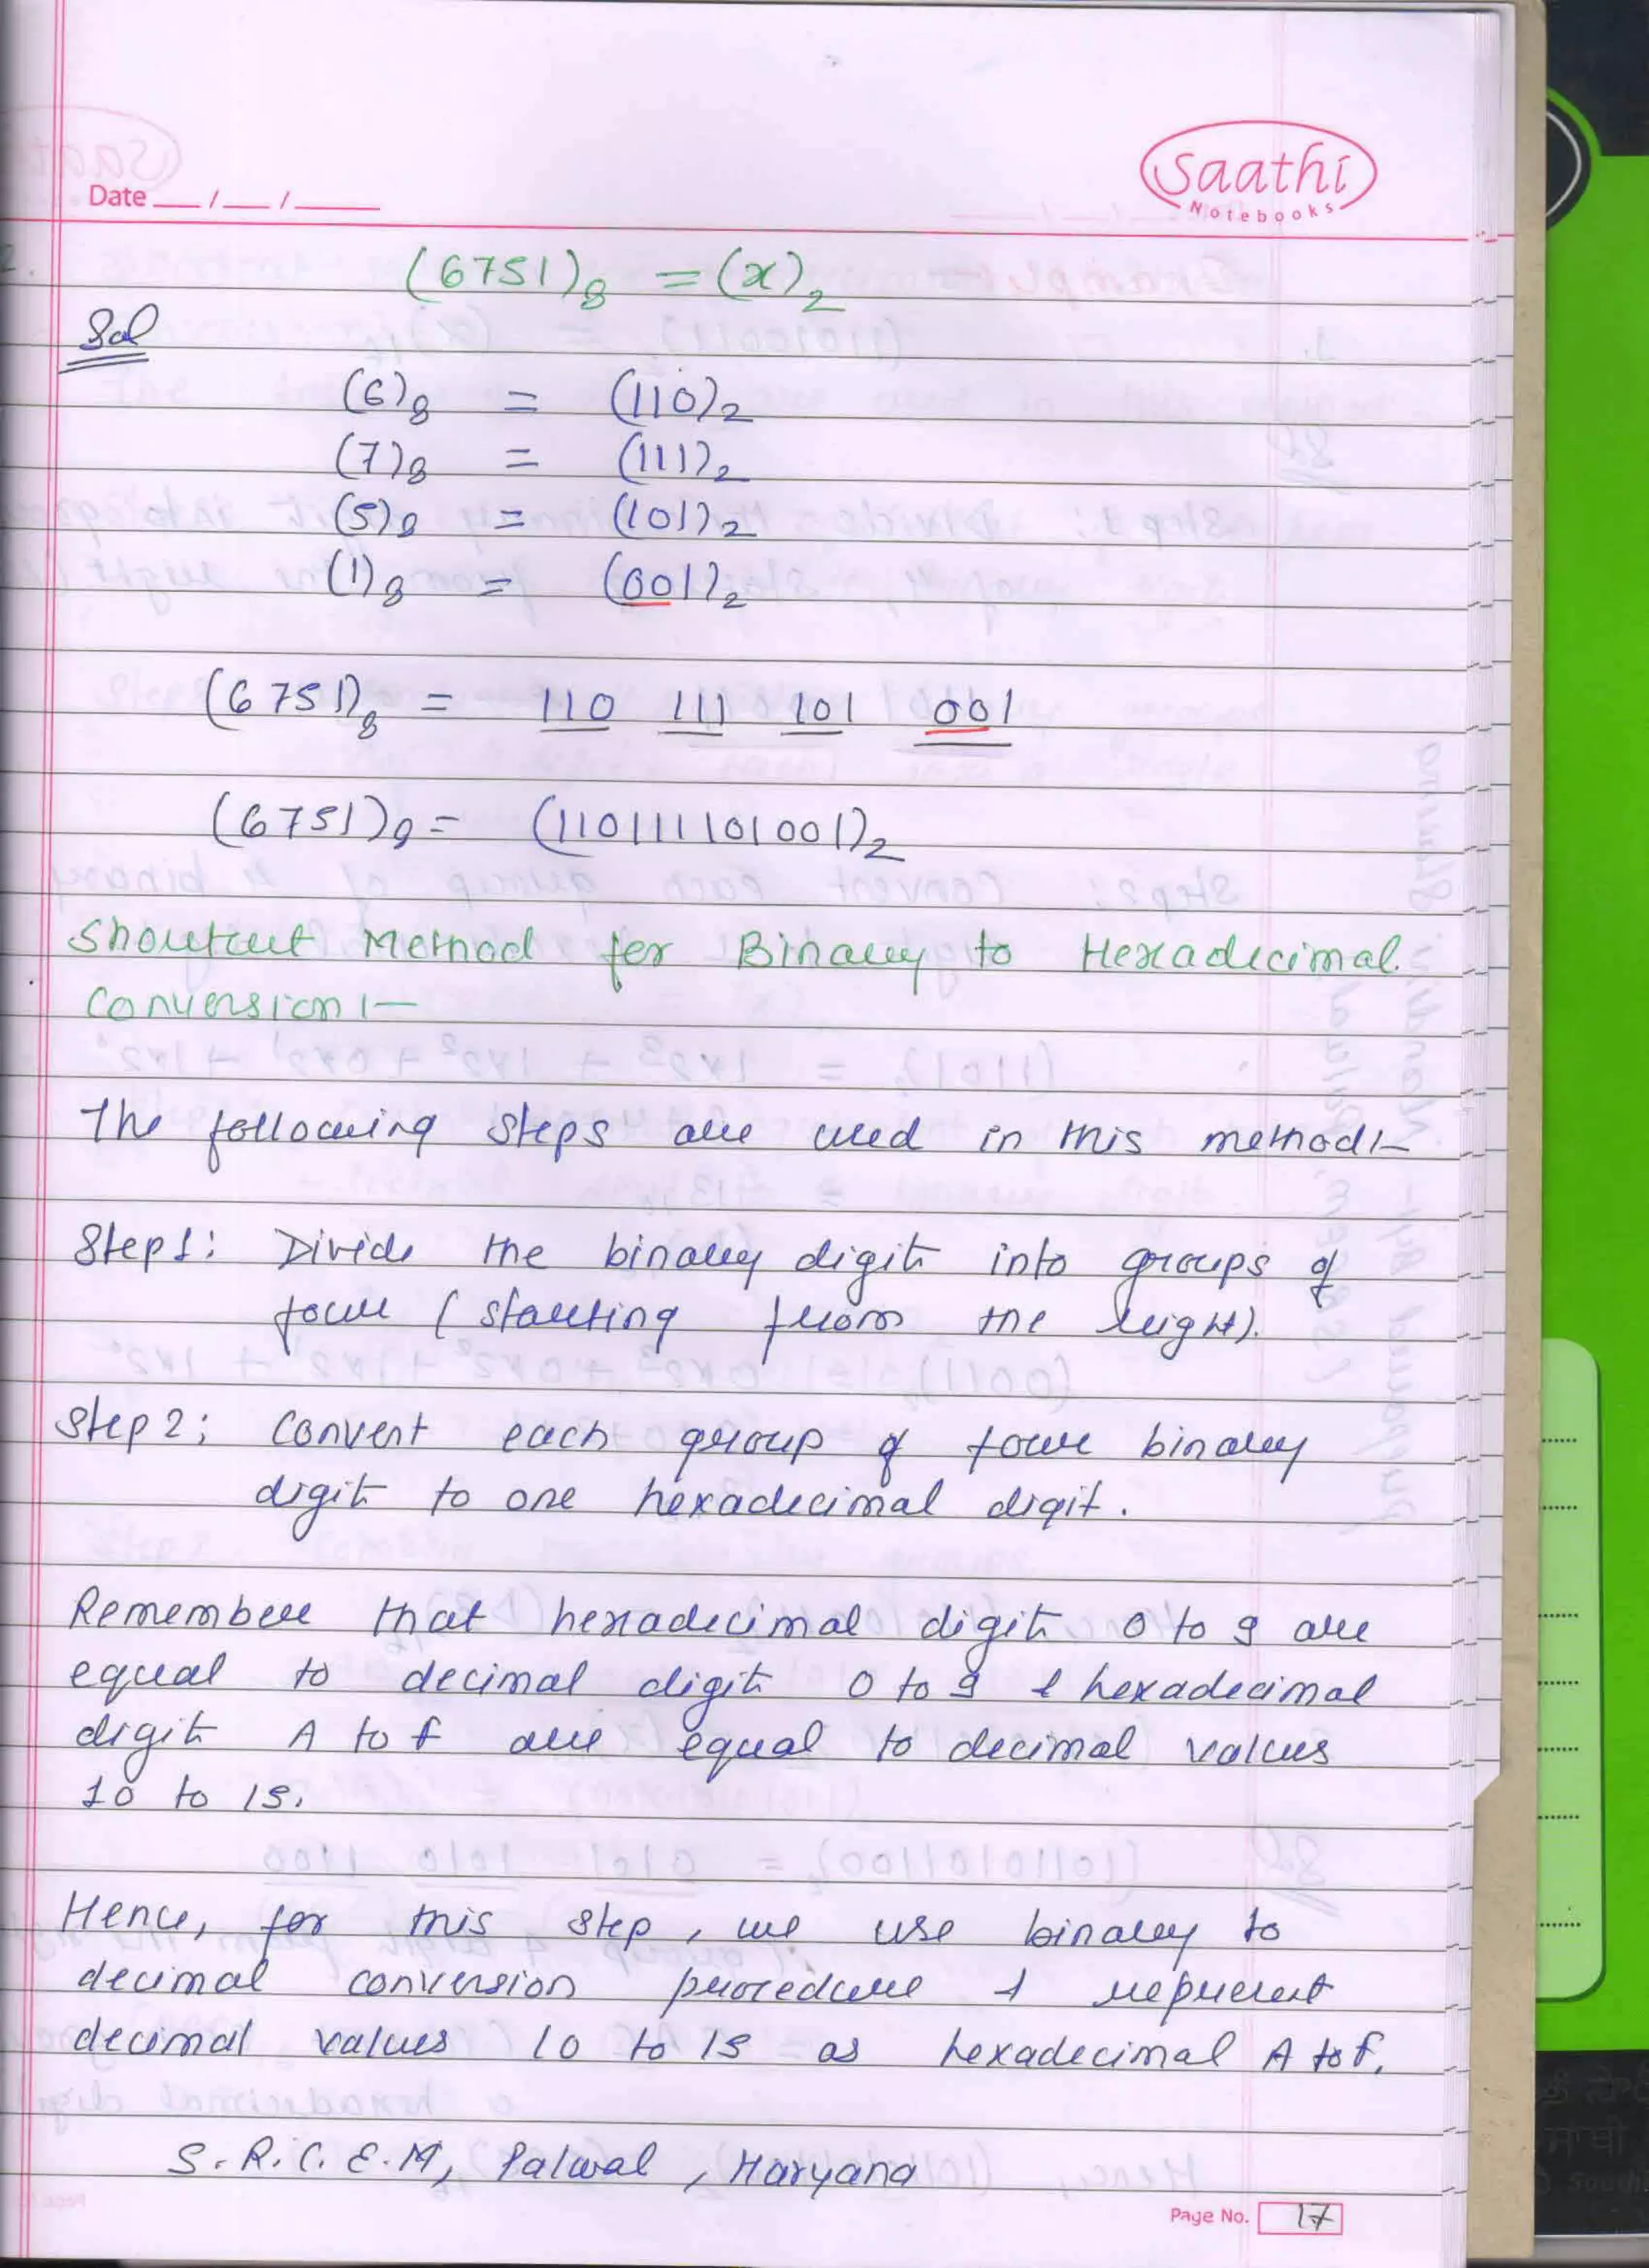 Saathi
Notebooks
Date __ / __ / ____
2.
(6751)8 = (x)2
Sol
(6)8 = (110)2
(7)8 = (111)2
(5)8 = (101)2
(1)8 = (001)2
(6751)8 = 110 111 101 001
(6751)8 = (110111101001)2
Shortcut Method for Binary to Hexadecimal
Conversion :-
The following steps are used in this method :-
Step 1: Divide the binary digits into groups of
four (starting from the right).
Step 2: Convert each group of four binary
digits to one hexadecimal digit.
Remember that hexadecimal digits 0 to 9 are
equal to decimal digits 0 to 9 & hexadecimal
digits A to F are equal to decimal values
10 to 15.
Hence, for this step, we use binary to
decimal conversion procedure & represent
decimal values 10 to 15 as hexadecimal A to F.
S.R.C.E.M, Palwal, Haryana
Page No. 17